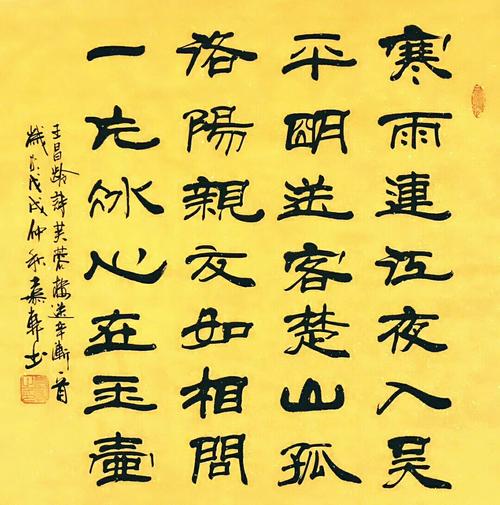 寒雨連江夜入吴
平明送客楚山孤
洛陽親友如相問
一片冰心在玉壷
王昌龄詩芙蓉樓送辛漸一首
歲在戊戌仲秋